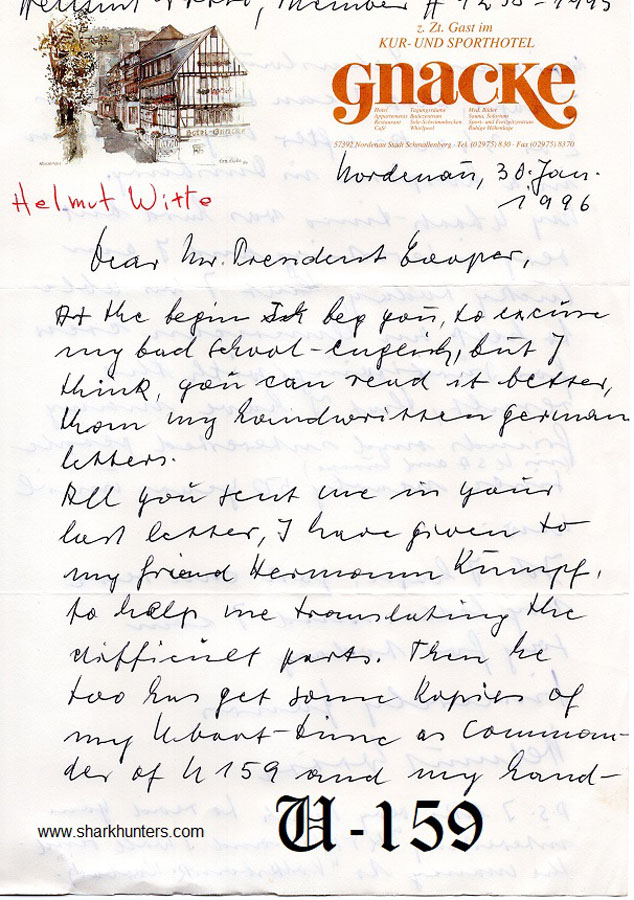 Helmut Witte, Member # 1238-1995
z. Zt. Gast im
KUR- UND SPORTHOTEL
gnacke
Hotel
Appartements
Restaurant
Café
Tagungsräume
Badezentrum
Sole-Schwimmbecken
Whirlpool
Med. Bäder
Sauna, Solarium
Sport- und Freizeitzentrum
Ruhige Höhenlage
57392 Nordenau Stadt Schmallenberg · Tel. (02975) 830 · Fax (02975) 8370
Nordenau, 30. Jan.
1996
Helmut Witte
Dear Mr. President Cooper,
At the begin I beg you, to excuse
my bad school-english, but I
think, you can read it better,
than my handwritten german
letters.
All you sent me in your
last letter, I have given to
my friend Hermann Kümpf,
to help me translating the
difficult parts. Then he
too has get some Kopies of
my Uboat-time as Comman-
der of U 159 and my hand-
U-159
www.sharkhunters.com